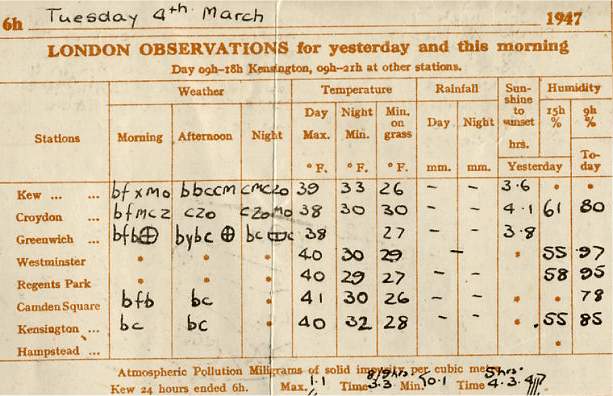 6h Tuesday 4th March 1947
LONDON OBSERVATIONS for yesterday and this morning
Day 09h-18h Kensington, 09h-21h at other stations.
Stations Weather Temperature Rainfall Sunshine to sunset Humidity
Morning Afternoon Night Day Max. Night Min. Min. on grass Day Night hrs. 15h % 9h %
° F. ° F. ° F. mm. mm. Yesterday To-day
Kew ... ... bfxmo bbccm cmczo 39 33 26 – – 3·6 • •
Croydon ... bfmcz czo czomo 38 30 30 – – 4·1 61 80
Greenwich ... bfb⊕ bybc ⊕ bc 38 27 – – 3·8
Westminster • • • 40 30 29 – 55 97
Regents Park • • • 40 29 27 – – 58 95
Camden Square bfb bc • 41 30 26 – – • • 78
Kensington ... bc bc • 40 32 28 – – • 55 85
Hampstead ... •
Atmospheric Pollution Miligrams of solid impurity per cubic metre
Kew 24 hours ended 6h. Max. 1·1 Time 3·3 Min. 0·1 Time 5hrs. 4·3·47